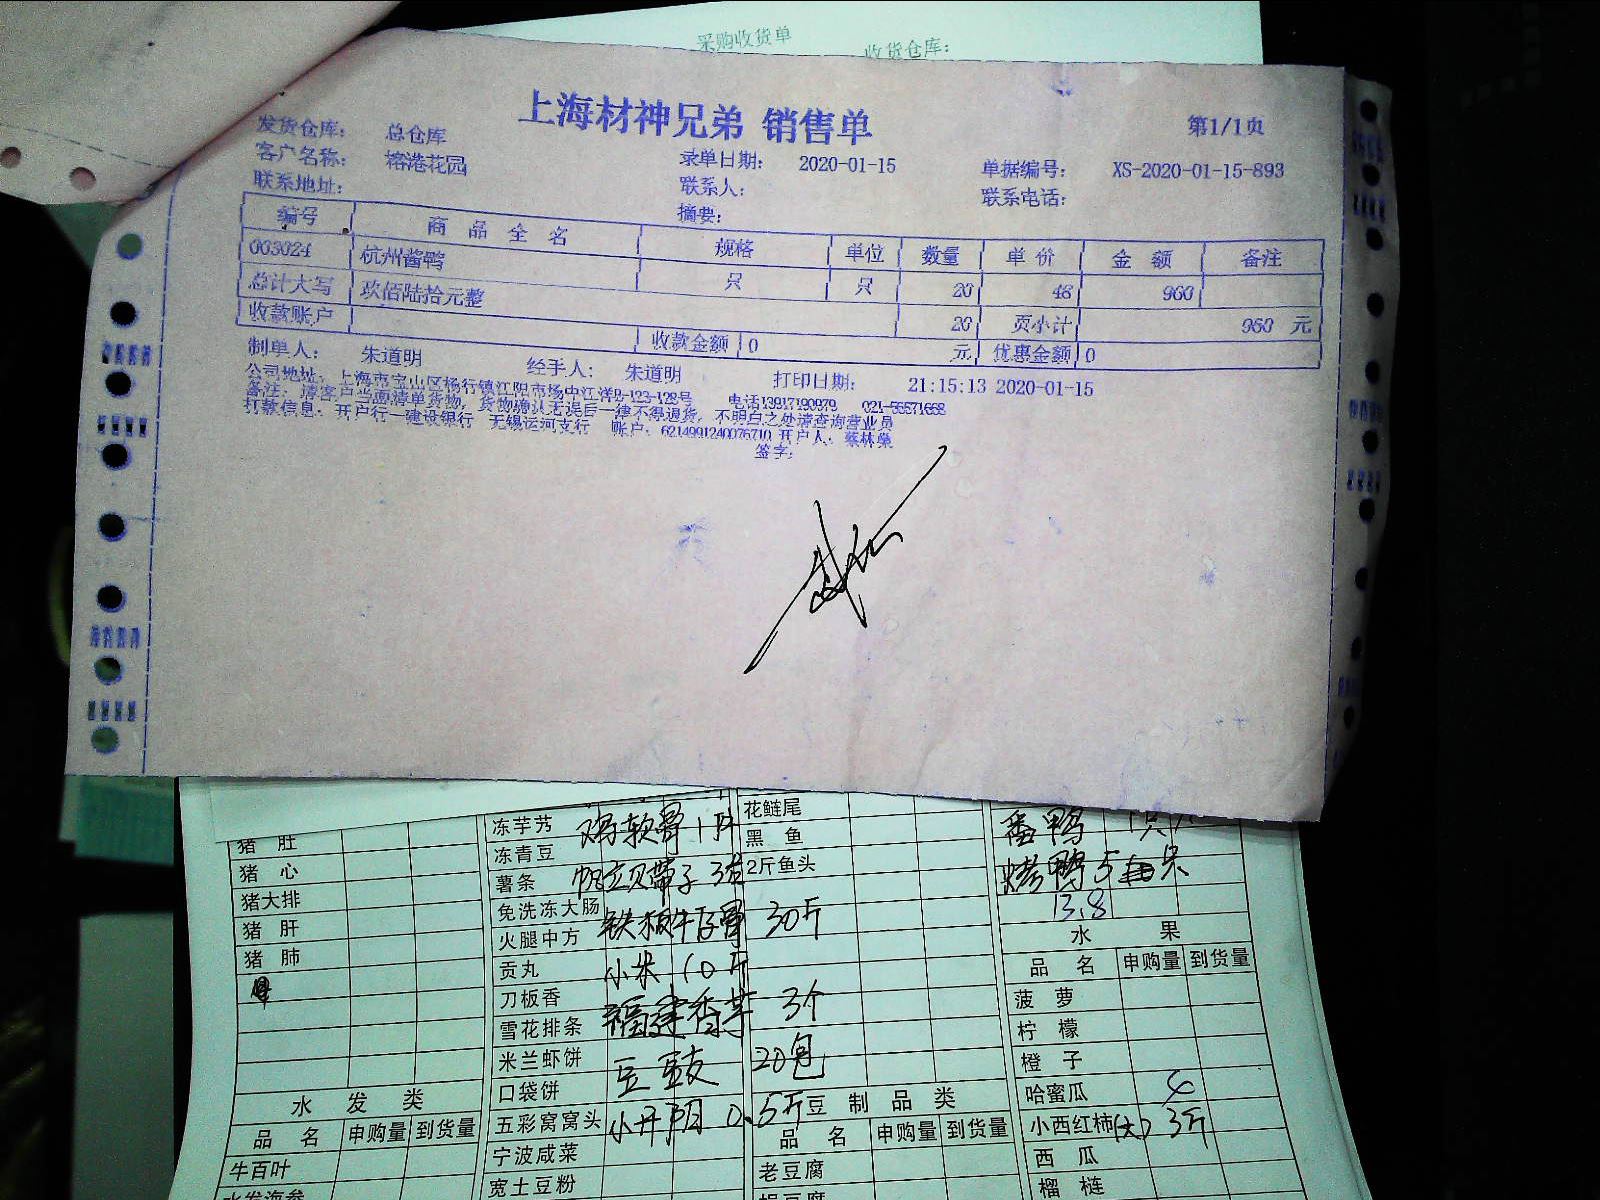 采购收货单
收货仓库：
上海材神兄弟 销售单
第1/1页
发货仓库： 总仓库
客户名称： 榕港花园 录单日期： 2020-01-15 单据编号： XS-2020-01-15-893
联系地址： 联系人： 联系电话：
摘要：
编号 商品全名 规格 单位 数量 单价 金额 备注
003024 杭州酱鸭 只 只 20 48 960
总计大写 玖佰陆拾元整 20 页小计 960 元
收款账户 收款金额 0 元 优惠金额 0
制单人： 朱道明 经手人： 朱道明 打印日期： 21:15:13 2020-01-15
公司地址：上海市宝山区杨行镇江阳市场中江洋B-123-128号 电话13917190979
备注：请客户当面清单货物，货物确认无误后一律不得退货，不明白之处请查询营业员
打款信息：开户行一建设银行 无锡运河支行 账户：6214991240076710 开户人：蔡林荣
签字：
猪肚 冻芋艿 鸡软骨 花鲢尾 番鸭 1只
猪心 冻青豆 黑鱼 烤鸭 5只
猪大排 薯条 帆立贝带子 2斤鱼头 13.8
猪肝 免洗冻大肠 铁板牛仔骨 30斤 水果
猪肺 火腿中方 品名 申购量 到货量
贡丸 小米 10斤 菠萝
刀板香 福建香芋 3个 柠檬
雪花排条 橙子
米兰虾饼 豆豉 20包 哈蜜瓜
水发类 口袋饼 豆制品类 小西红柿(大) 3斤
品名 申购量 到货量 五彩窝窝头 小开阳 0.5斤 品名 申购量 到货量 西瓜
牛百叶 宁波咸菜 老豆腐 榴梿
水发海参 宽土豆粉